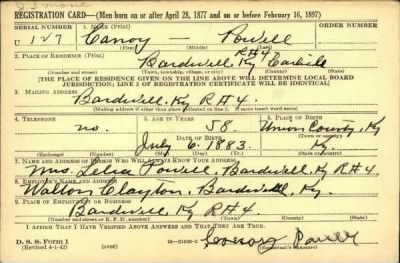 REGISTRATION CARD—(Men born on or after April 28, 1877 and on or before February 16, 1897)
SERIAL NUMBER 1. NAME (Print) ORDER NUMBER
U 127 Canoy Powell
(First) (Middle) (Last)
R#4
2. PLACE OF RESIDENCE (Print)
Bardwell, Ky Carlisle
(Number and street) (Town, township, village, or city) (County) (State)
[THE PLACE OF RESIDENCE GIVEN ON THE LINE ABOVE WILL DETERMINE LOCAL BOARD
JURISDICTION; LINE 2 OF REGISTRATION CERTIFICATE WILL BE IDENTICAL]
3. MAILING ADDRESS
Bardwell, Ky R#4.
(Mailing address if other than place indicated on line 2. If same insert word same)
4. TELEPHONE 5. AGE IN YEARS 6. PLACE OF BIRTH
no. 58. Union County, Ky
DATE OF BIRTH (Town or county)
July 6. 1883. Ky.
(Exchange) (Number) (Mo.) (Day) (Yr.) (State or country)
7. NAME AND ADDRESS OF PERSON WHO WILL ALWAYS KNOW YOUR ADDRESS
Mrs. Powell, Bardwell, Ky R#4.
8. EMPLOYER'S NAME AND ADDRESS
Walton Clayton, Bardwell, Ky.
9. PLACE OF EMPLOYMENT OR BUSINESS
Bardwell, Ky R#4.
(Number and street or R. F. D. number) (Town) (County) (State)
I AFFIRM THAT I HAVE VERIFIED ABOVE ANSWERS AND THAT THEY ARE TRUE.
D. S. S. Form 1
(Revised 4-1-42) (over) Powell
(Registrant's signature)